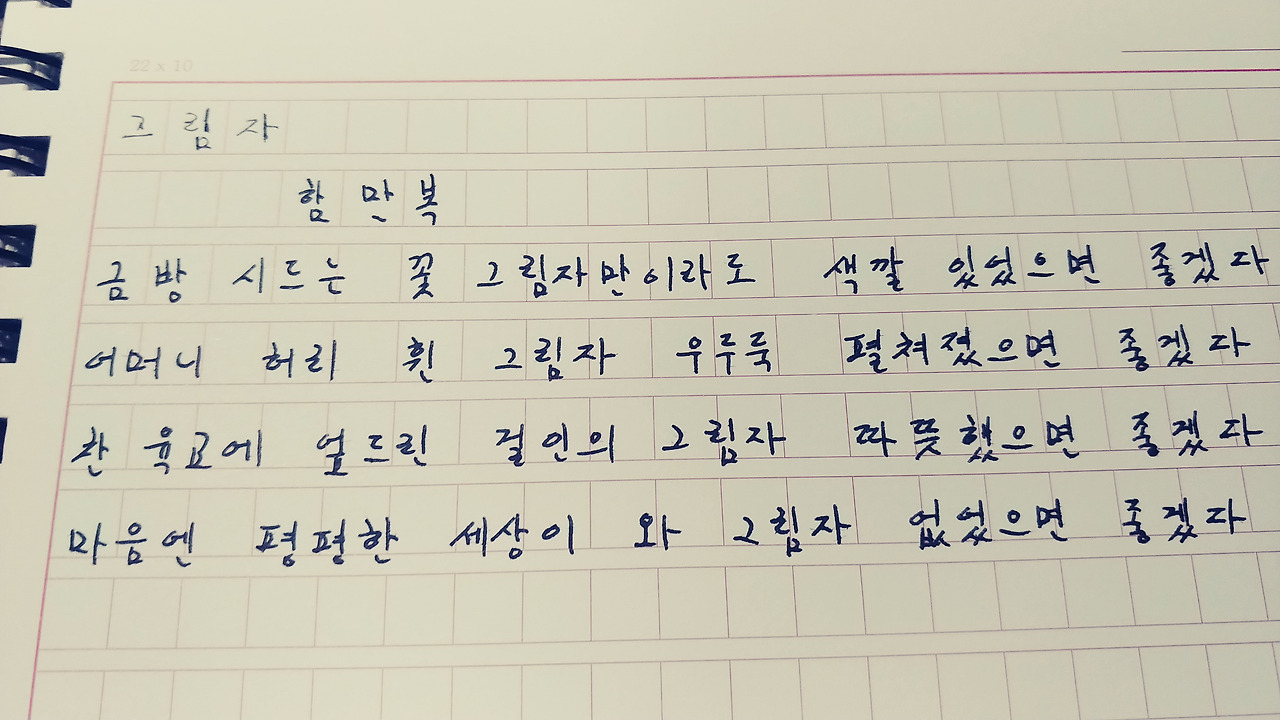 22 x 10
그림자
함만복
금방 시드는 꽃 그림자만이라도 색깔 있었으면 좋겠다
어머니 허리 흰 그림자 우루룩 펼쳐졌으면 좋겠다
찬 육교에 엎드린 걸인의 그림자 따뜻했으면 좋겠다
마음엔 평평한 세상이 와 그림자 없었으면 좋겠다